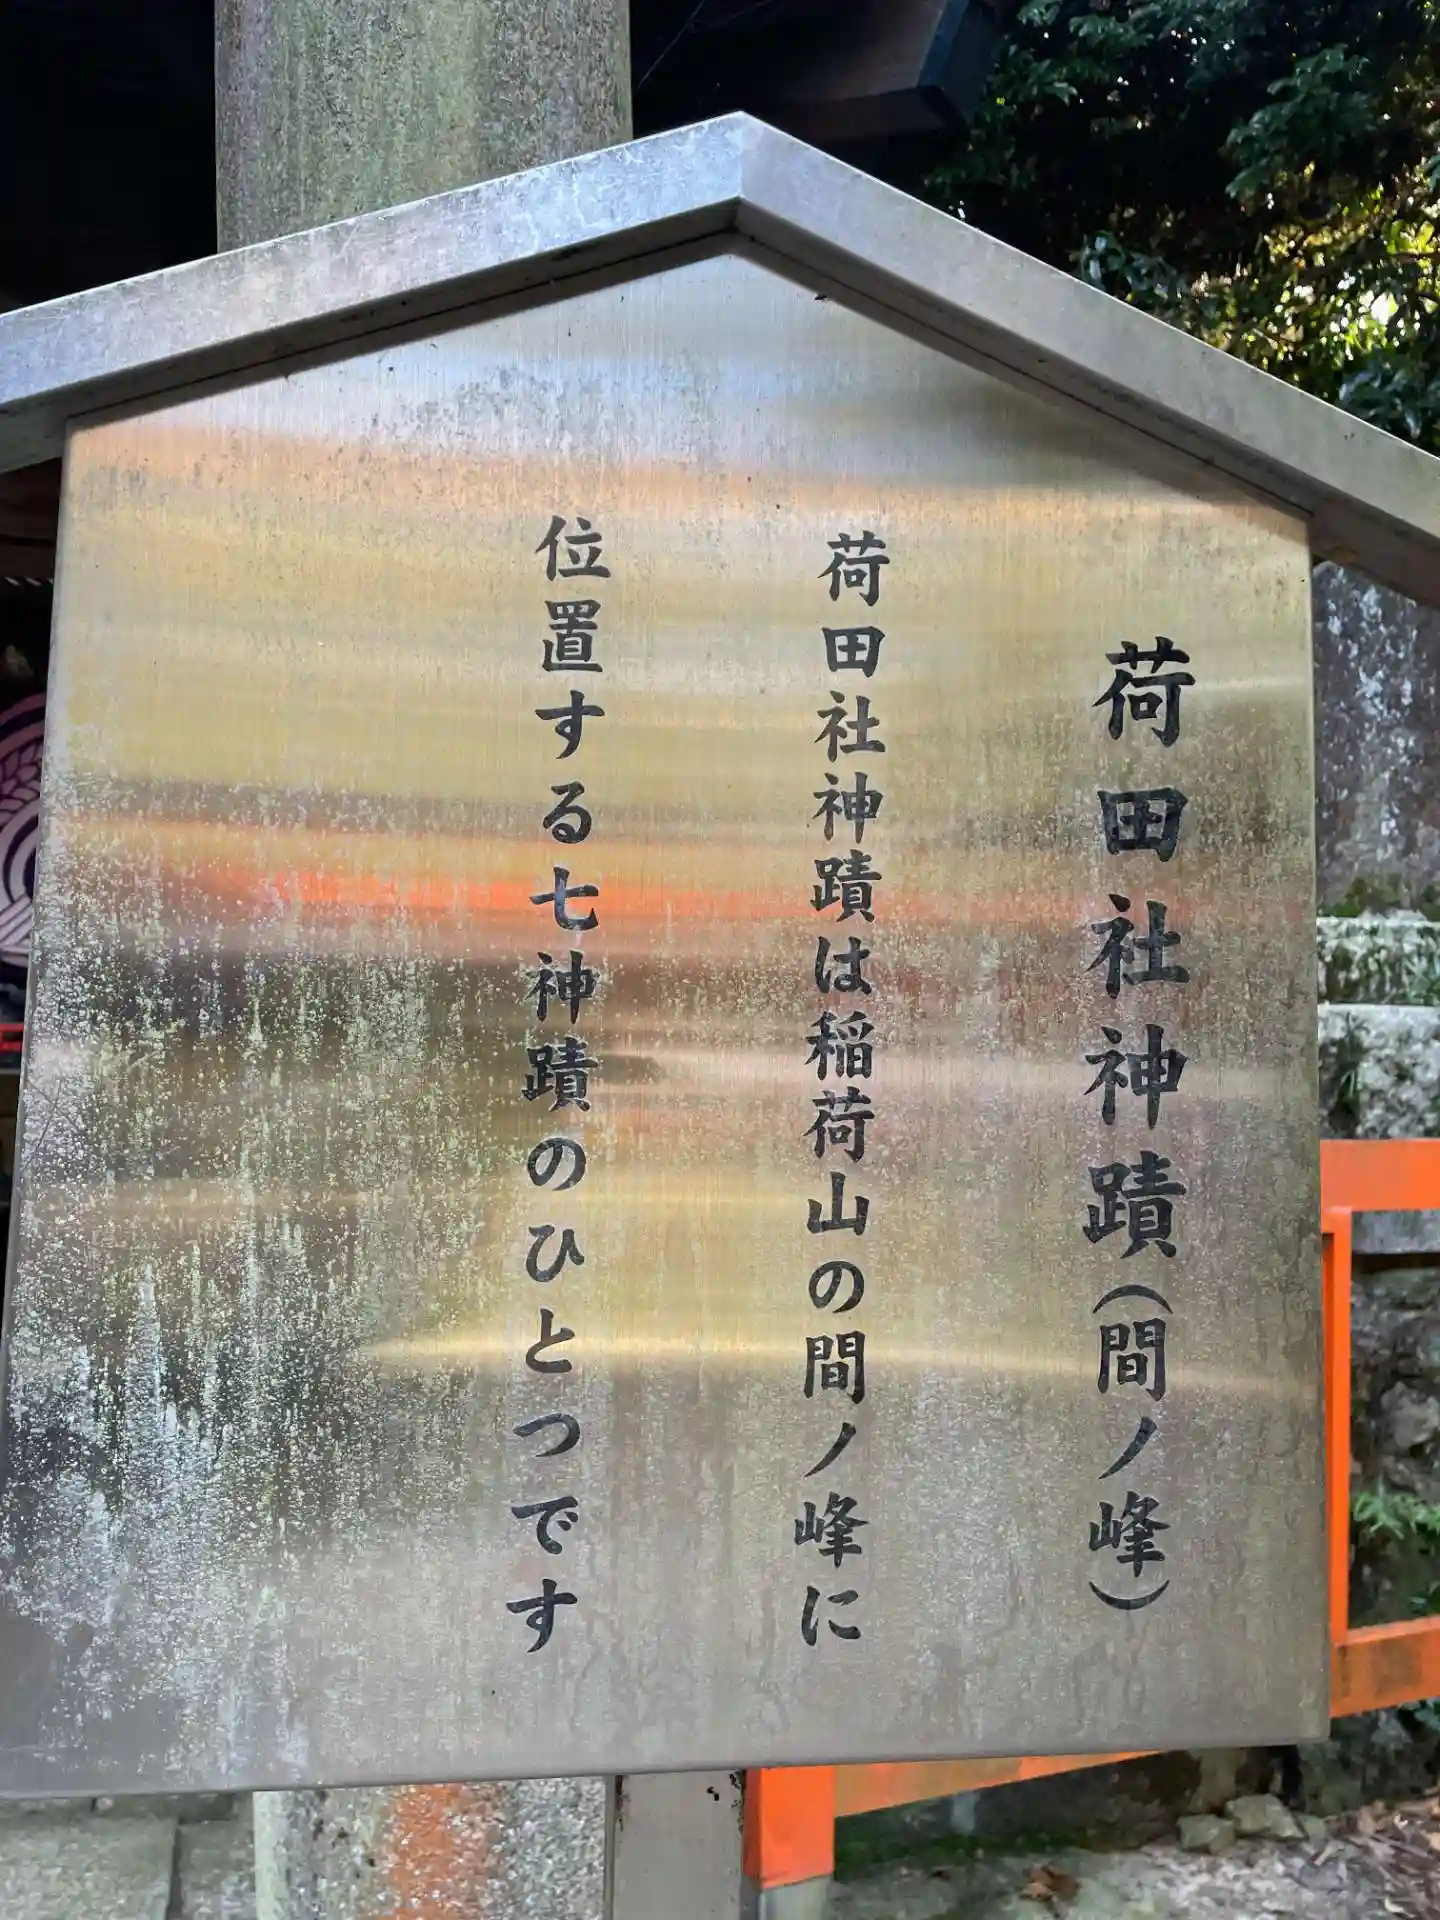 荷田社神蹟(間ノ峰)
荷田社神蹟は稲荷山の間ノ峰に
位置する七神蹟のひとつです